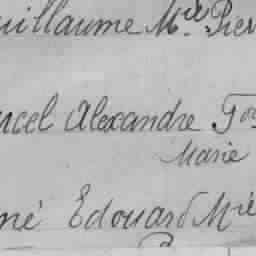 uillaume Mie Pier
rcel Alexandre
Marie
né Edouard Mie